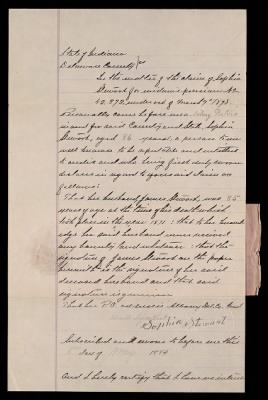 State of Indiana
Delaware County } ss
In the matter of the claim of Sophia
Stewart for widow's pension No.
Personally came before me a Notary Public
in and for said County and State, Sophia
Stewart, aged 86 years, a person
well known to be reputable and entitled
to credit and who being first duly sworn
declares in regard to aforesaid claim as
follows:
That her husband, James Stewart, was 85
years of age at the time of his death which
took place in the year : that to her knowl
edge her said husband never received
any bounty land : that the
signature of James Stewart on the paper
is the signature of her said
deceased husband and that said
signature is genuine
That her P.O. address is Albany Del. Co. Ind
Sophia Stewart
Subscribed and sworn to before me this
day of
And I hereby certify that I have no interest